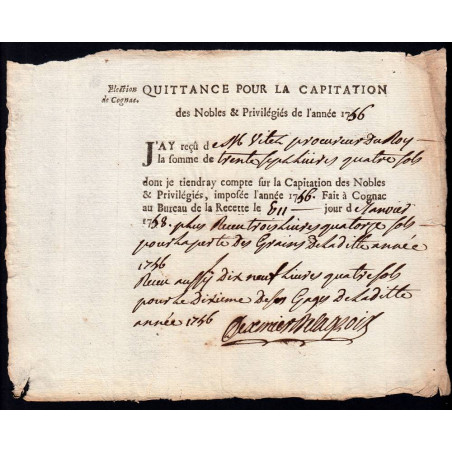 Election
de Cognac.
QUITTANCE POUR LA CAPITATION
des Nobles & Privilégiés de l'année 1756
J'AY reçû de M Viteh procureur Du Roy
la somme de trente sept livres quatre sols
dont je tiendray compte sur la Capitation des Nobles
& Privilégiés, imposée l'année 1756. Fait à Cognac
au Bureau de la Recette le jour de Janvier
1758. plus Receu trois livres quatorze sols
pour la perte des Grains de laditte année
1756
Receu aussy dix neuf livres quatre sols
pour le dixieme de ses Gages de laditte
année 1756